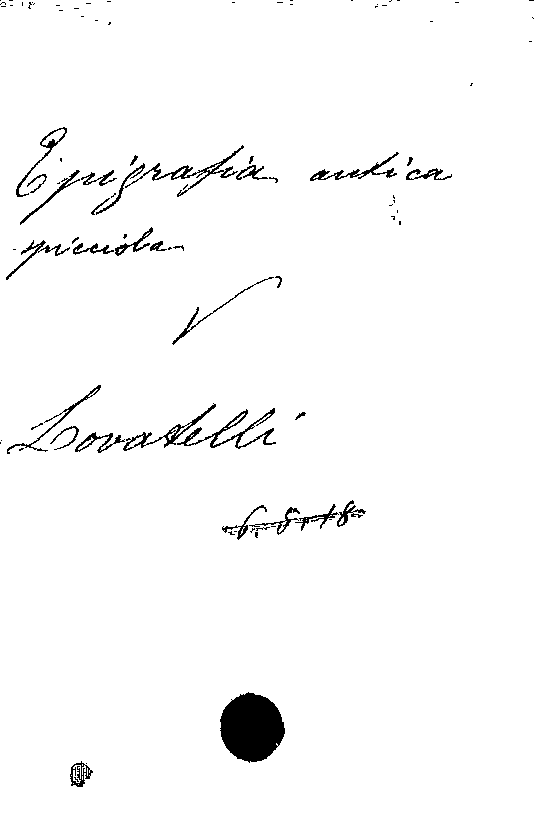 Epigrafia antica
picciola
Lovatelli
6. 8. 18